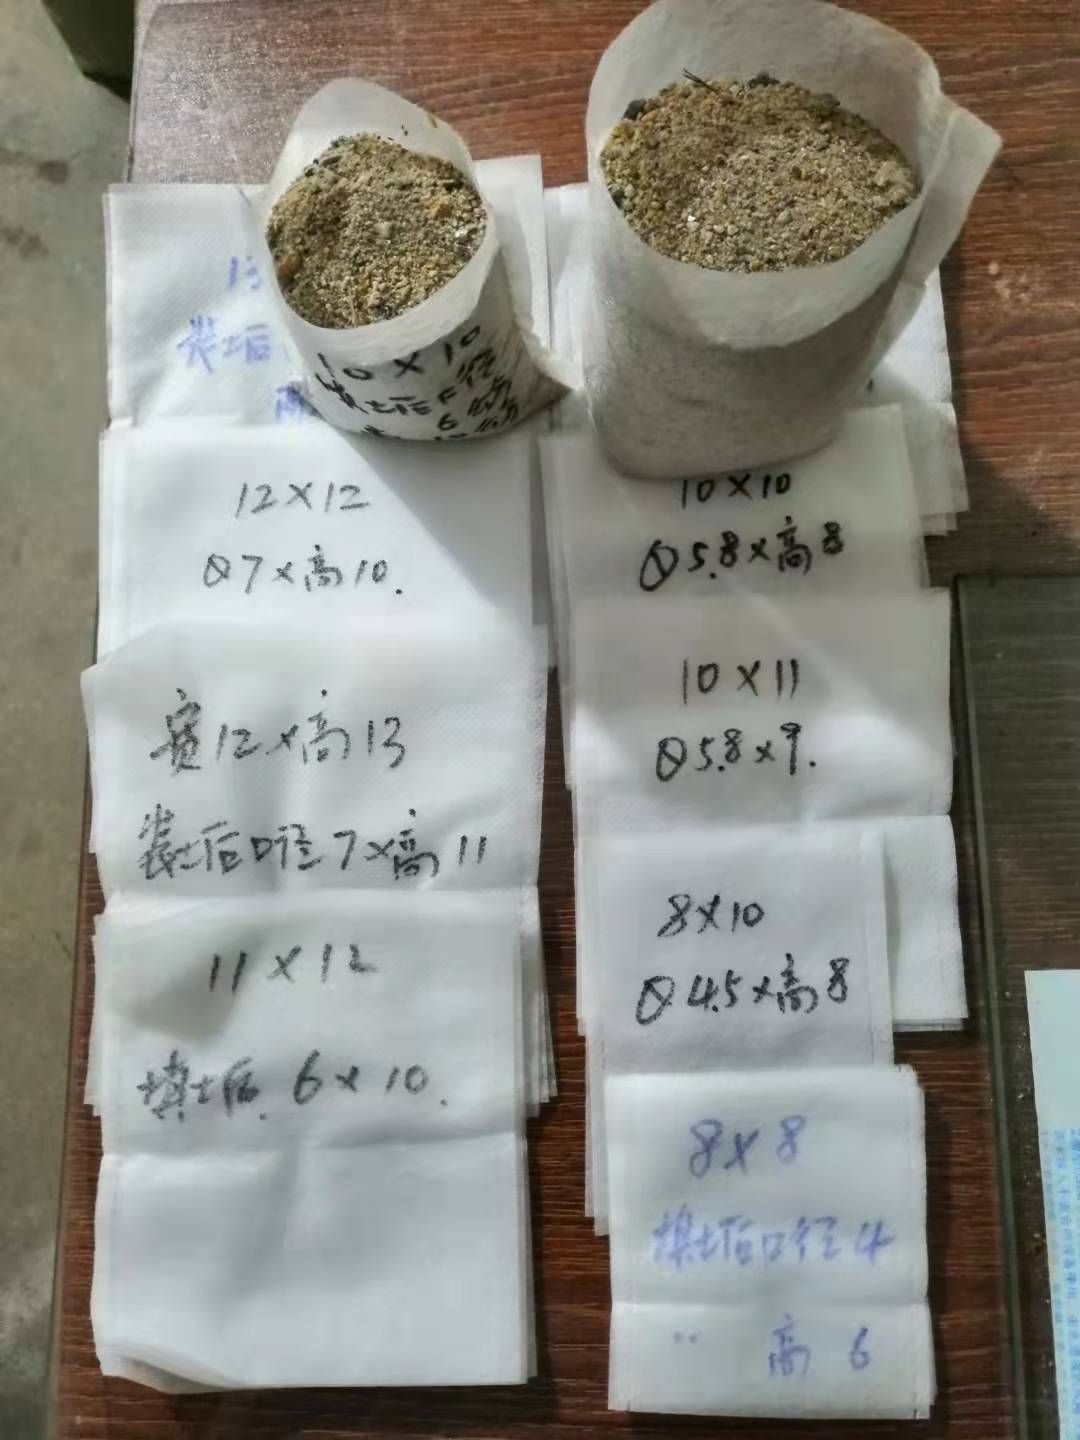 13
装土后
10 X 10
填土后
6
12X12
Ø7×高10.
宽12×高13
装土后口径7×高11
11 X 12
填土后. 6 × 10.
10 X 10
Ø5.8×高8
10 X 11
Ø5.8×9.
8X10
Ø4.5×高8
8 X 8
填土后口径4
" 高 6